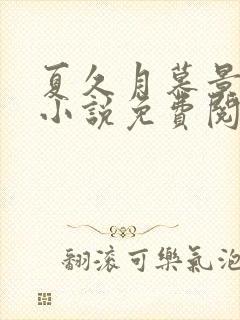 夏久月慕景
小說免費閱
翻滾可樂氣泡